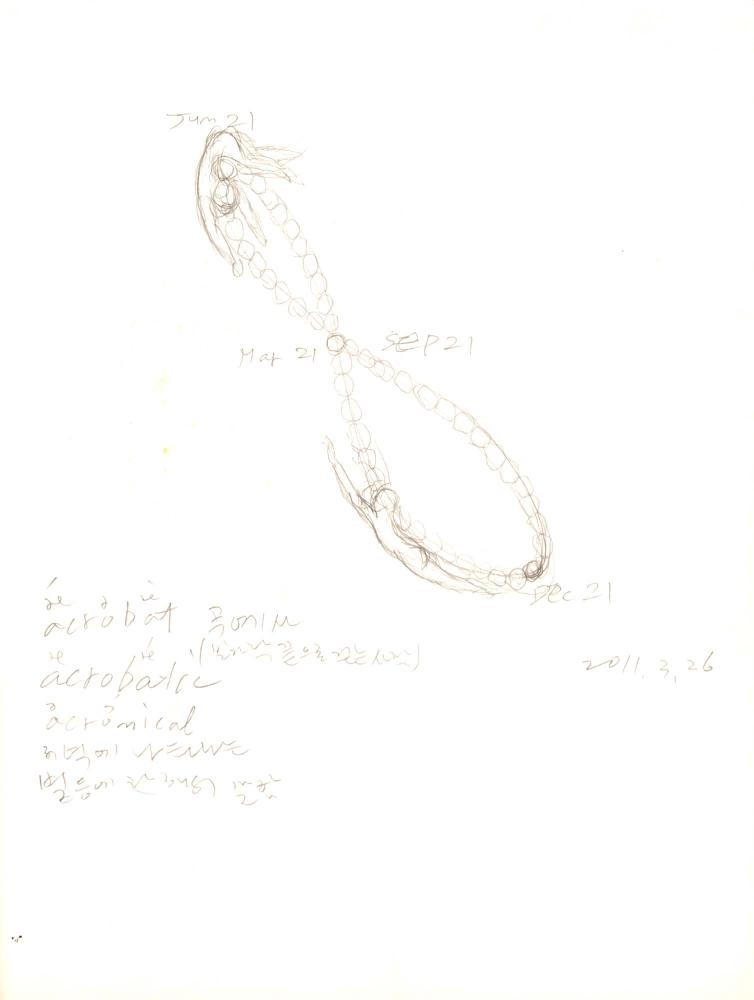 Jun 21
Mar 21
SEP 21
Dec 21
acrobat 곡예사
(발가락 끝으로 걷는 사람)
acrobatic
2011. 3. 26
acronical
저녁에 나타나는
별 등에 관해서 말함